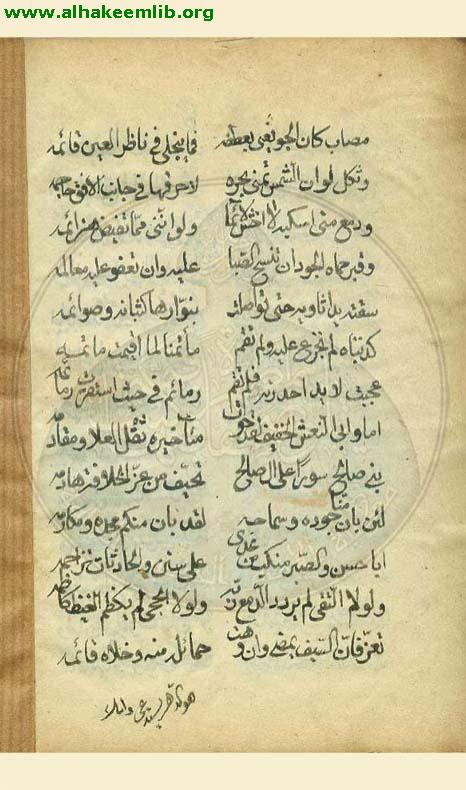 www.alhakeemlib.org
مصاب كان الجو يغشى بعطفه فما ينجلي في ناظر العين قائمه
وثكل لو ان الشمس تمنى بحره لاحرقها في جانب الافق جاحمه
ودمع متى اسكبه لا اخش لائما ولو انني مما تفيض هزائمه
وقبر حماه الجود ان تنسج الصبا عليه وان تعفو عليه معالمه
سقته يد حتى نوار ها كثبانه وصرائمه
كذبناه لم نجزع عليه ولم تقم مأتمنا لما اقيمت مآتمه
عجبت لايد احدرته فلم تقم رمائم في حيث استقرت رمائمه
اما وابي النعش الخفيف لقد حوت مناخيره ثقل العلا ومقادمه
بني صالح سورا على الصالح تحيف من عز الخلافة هادمه
لئن بان منا جوده وسماحه لقد بان منكم مجده ومكارمه
ابا حسن والصبر منكب من غدى على سنن والحادثات تزاحمه
ولولا التقى لم يردد الدمع ربه ولولا الحجى لم يكظم الغيظ كاظمه
تعز فان السيف يمضي وان وهت حمائل منه وخلاه قائمه